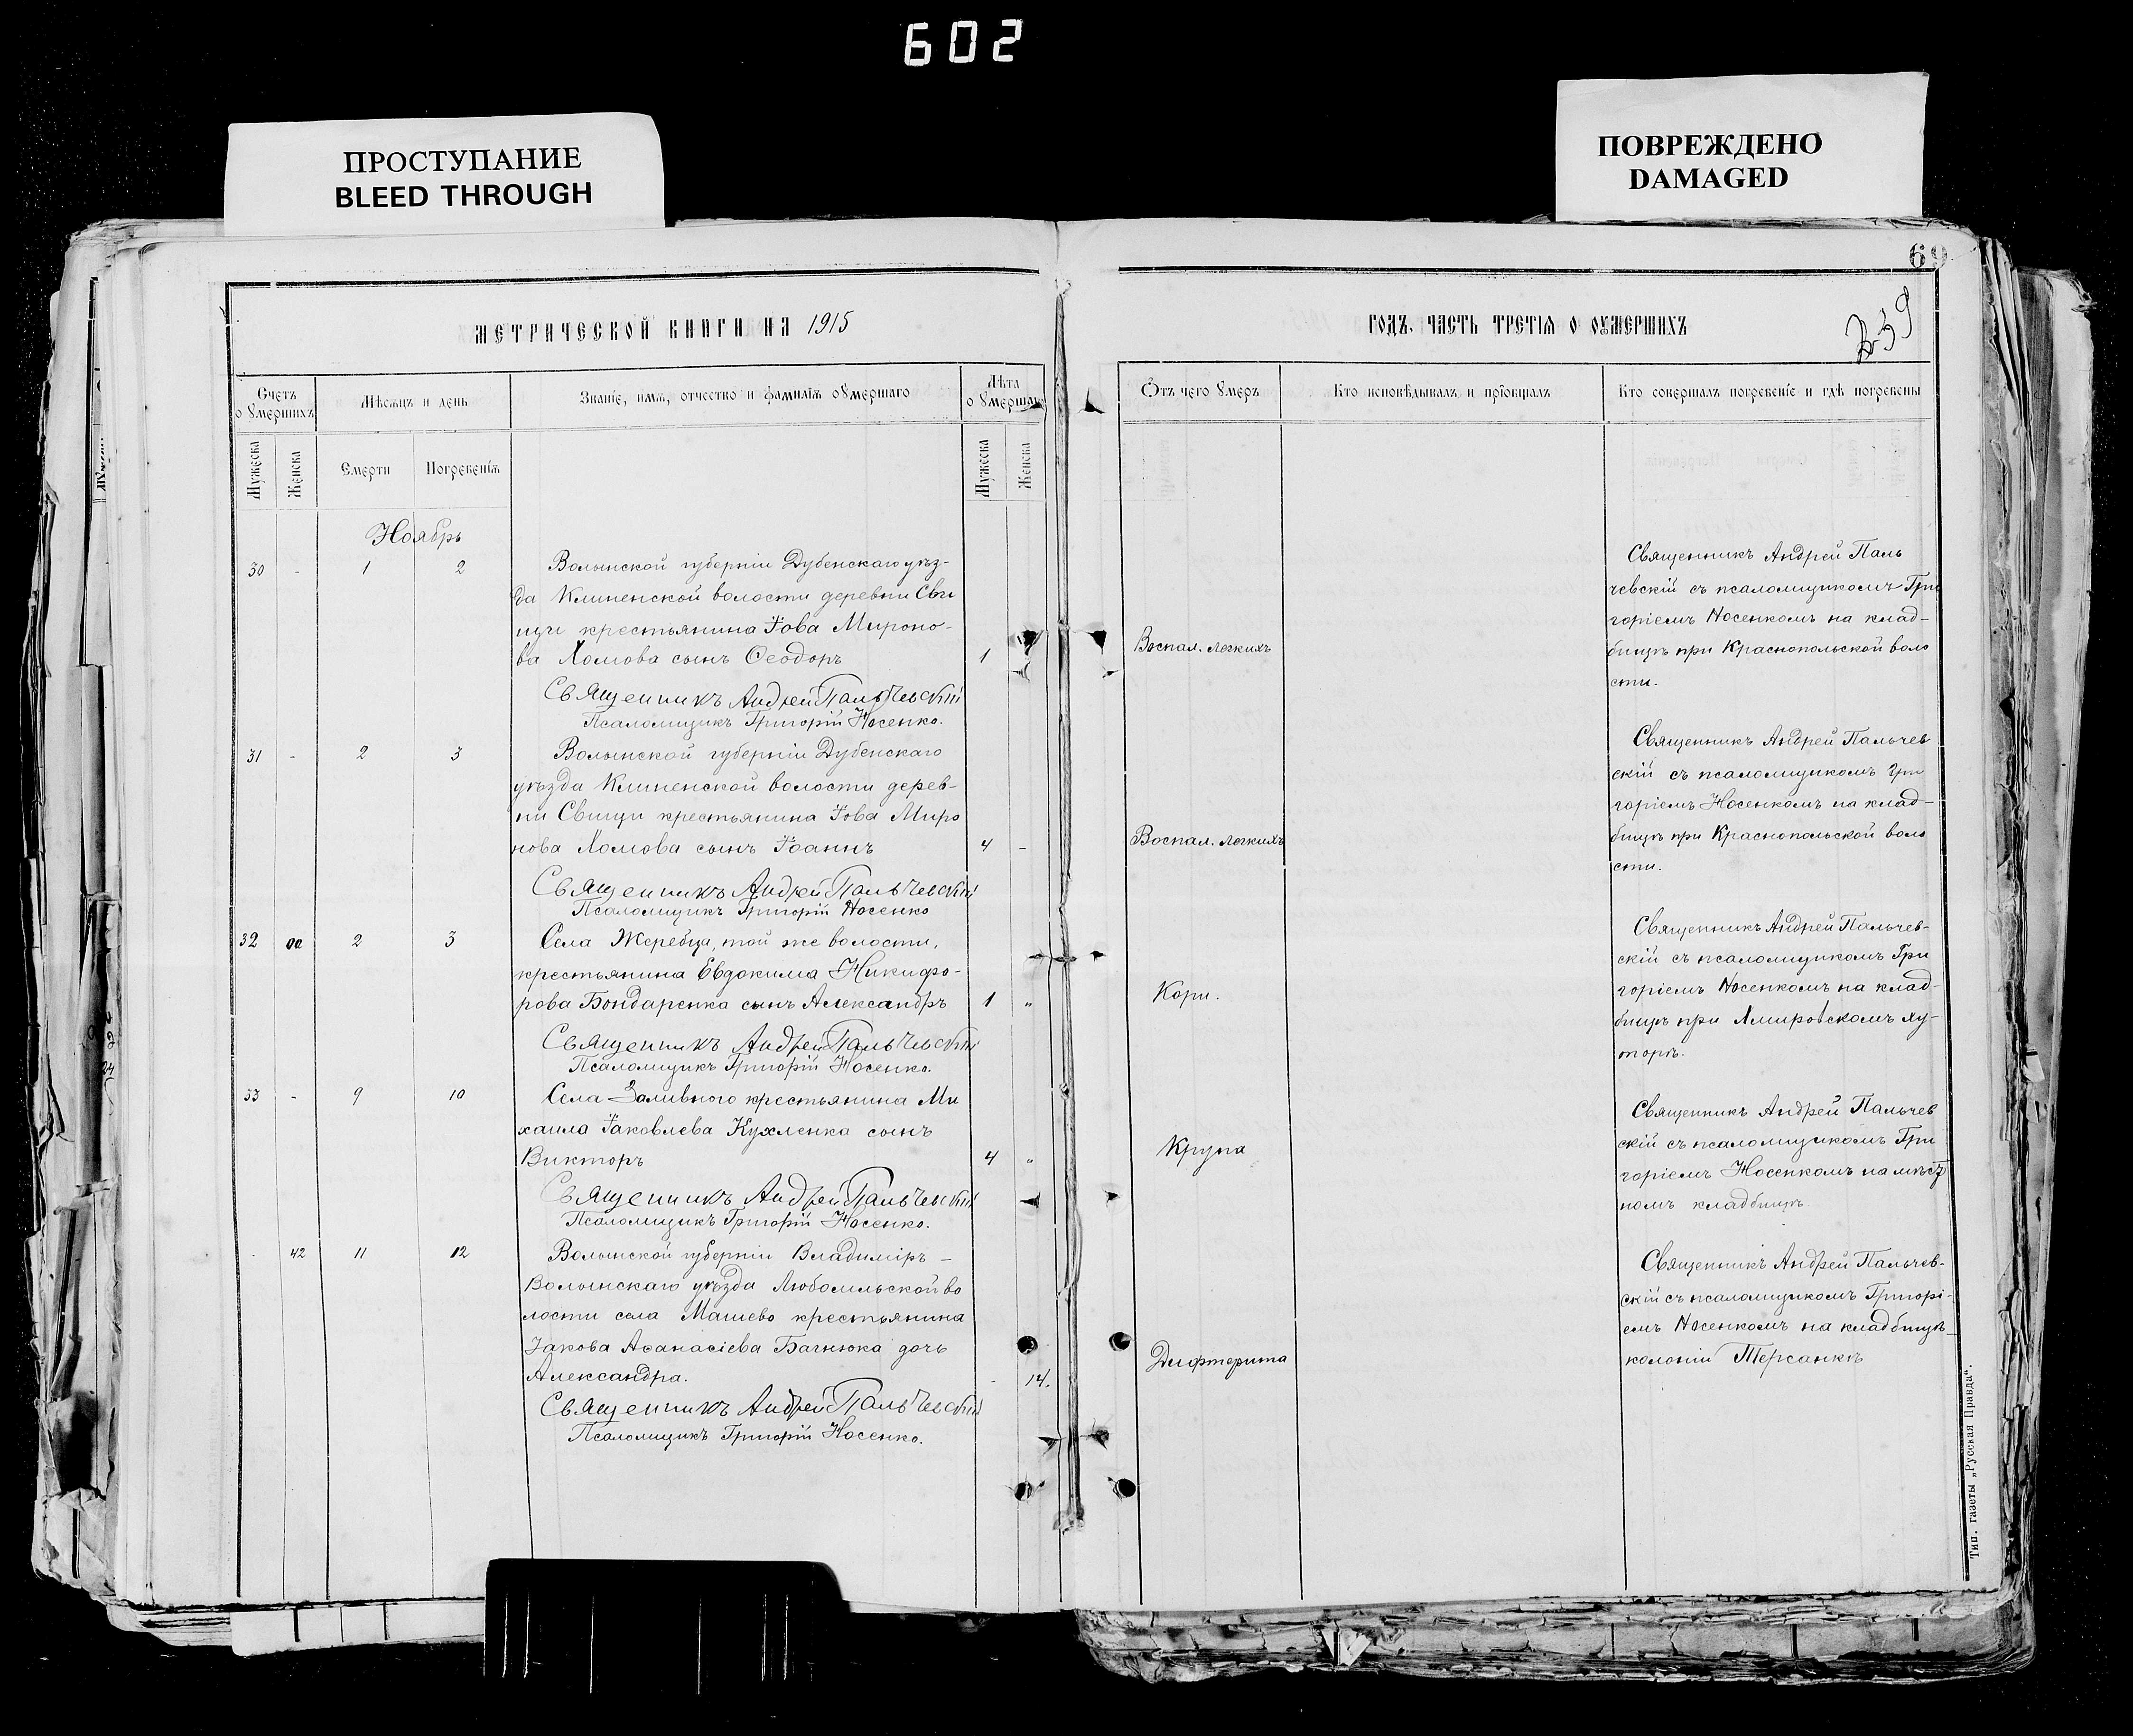 602
ПРОСТУПАНИЕ
BLEED THROUGH
ПОВРЕЖДЕНО
DAMAGED
69
239
МЕТРИЧЕСКОЙ КНИГИ НА 1915
ГОДЪ, ЧАСТЬ ТРЕТІЯ О ОУМЕРШИХЪ
Счетъ
оумершихъ
Мѣсяцъ и день
Званіе, имя, отчество и фамилія оумершаго
Лѣта
оумершаго
Мужеска
Женска
Смерти
Погребенія
Мужеска
Женска
Отъ чего умеръ
Кто исповѣдывалъ и пріобщалъ
Кто совершалъ погребеніе и гдѣ погребены
Ноябрь
30 - 1 2
Волынской губерніи Дубенскаго уѣз-
да Клиненской волости деревни Сви
щи крестьянина Іова Мироно-
ва Хомова сынъ Ѳеодоръ 1
Священникъ Андрей Пальчевскій
Псаломщикъ Григорій Носенко.
Воспал. легкихъ
Священникъ Андрей Паль
чевскій съ псаломщикомъ Гри
горіемъ Носенкомъ на клад-
бищѣ при Краснопольской воло
сти.
31 - 2 3
Волынской губерніи Дубенскаго
уѣзда Клиненской волости дерев-
ни Свищи крестьянина Іова Миро
нова Хомова сынъ Іоаннъ 4 -
Священникъ Андрей Пальчевскій
Псаломщикъ Григорій Носенко
Воспал. легкихъ
Священникъ Андрей Пальчев
скій съ псаломщикомъ Гри
горіемъ Носенкомъ на клад-
бищѣ при Краснопольской воло
сти.
32 2 3
Села Жеребца, той же волости,
крестьянина Евдокима Никифо-
рова Бондаренка сынъ Александръ 1 "
Священникъ Андрей Пальчевскій
Псаломщикъ Григорій Носенко.
Кори.
Священникъ Андрей Пальчев-
скій съ псаломщикомъ Гри
горіемъ Носенкомъ на клад-
бищѣ при ху-
торѣ.
33 - 9 10
Села Заливного крестьянина Ми
хаила Іаковлева Кухленка сынъ
Викторъ 4 "
Священникъ Андрей Пальчевскій
Псаломщикъ Григорій Носенко.
Крупа
Священникъ Андрей Пальчев
скій съ псаломщикомъ Гри
горіемъ Носенкомъ на мѣст
номъ кладбищѣ.
- 42 11 12
Волынской губерніи Владиміръ -
Волынскаго уѣзда Любомльской во
лости села Машево крестьянина
Іакова Аѳанасіева Багнюка дочь
Александра. - 14.
Священникъ Андрей Пальчевскій
Псаломщикъ Григорій Носенко.
Дифтерита
Священникъ Андрей Пальчев-
скій съ псаломщикомъ Григорі-
емъ Носенкомъ на кладбищѣ
колоніи Терсанкѣ
Тип. газеты „Русская Правда“.